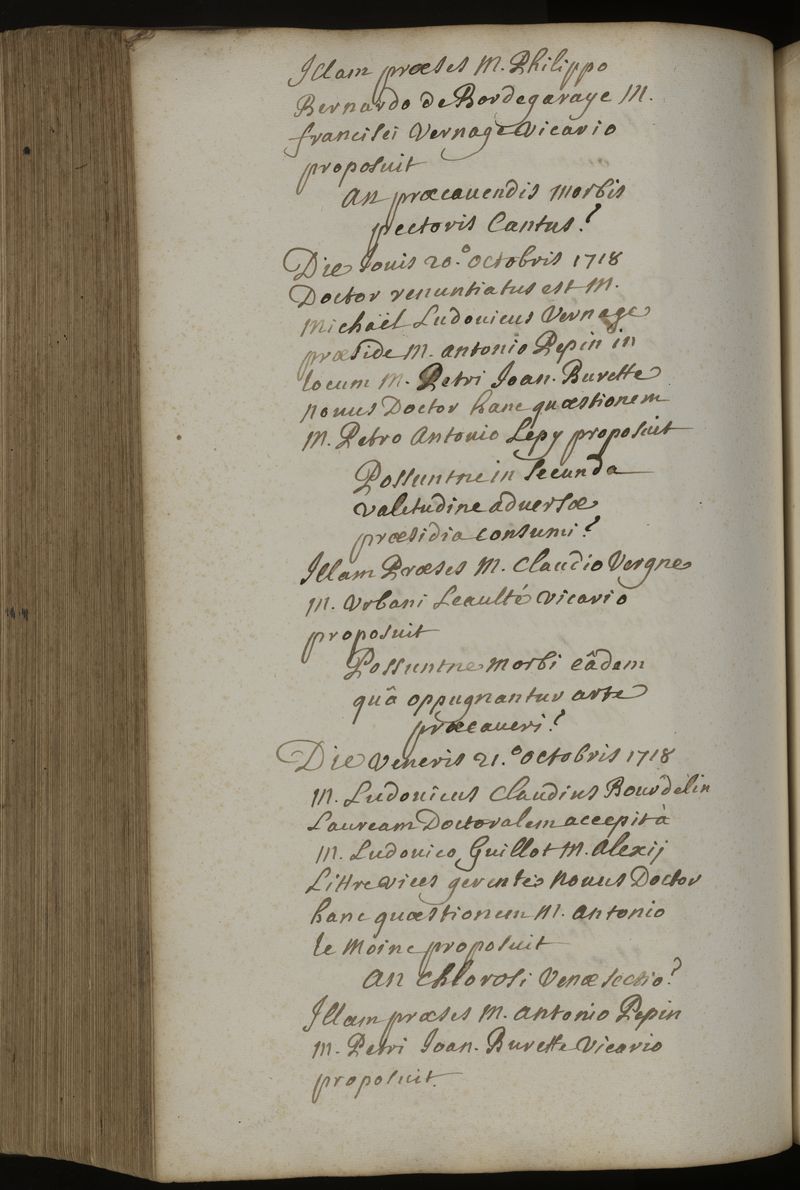 Illam præses M. Philippo
Bernardo de Bordegaraye M.
francisci Vernage Vicario
proposuit
An præcauendis morbis
pectoris Cantus?
Die Iouis 20.º octobris 1718
Doctor renuntiatus est M.
Michaël Ludouicus Vernage
præside M. antonio Pepin in
locum M. Petri Ioan. Burette
nouus Doctor hanc quæstionem
M. Petro Antonio Lepy proposuit
Possuntne in secunda
valetudine aduersæ
præsidia consumi?
Illam Præses M. Claudio Vergne
M. Vrbani Leaulté Vicario
proposuit
Possuntne morbi eâdem
quâ oppugnantur arte
præcaueri?
Die Veneris 21.º octobris 1718
M. Ludouicus Claudius Bourdelin
Lauream Doctoralem accepit à
M. Ludouico Guillot M. Alexij
Littre vices gerente nouus Doctor
hanc quæstionem M. antonio
le Moine proposuit
An chlorosi Venæ sectio?
Illam præses M. antonio Pepin
M. Petri Ioan. Burette Vicario
proposuit.